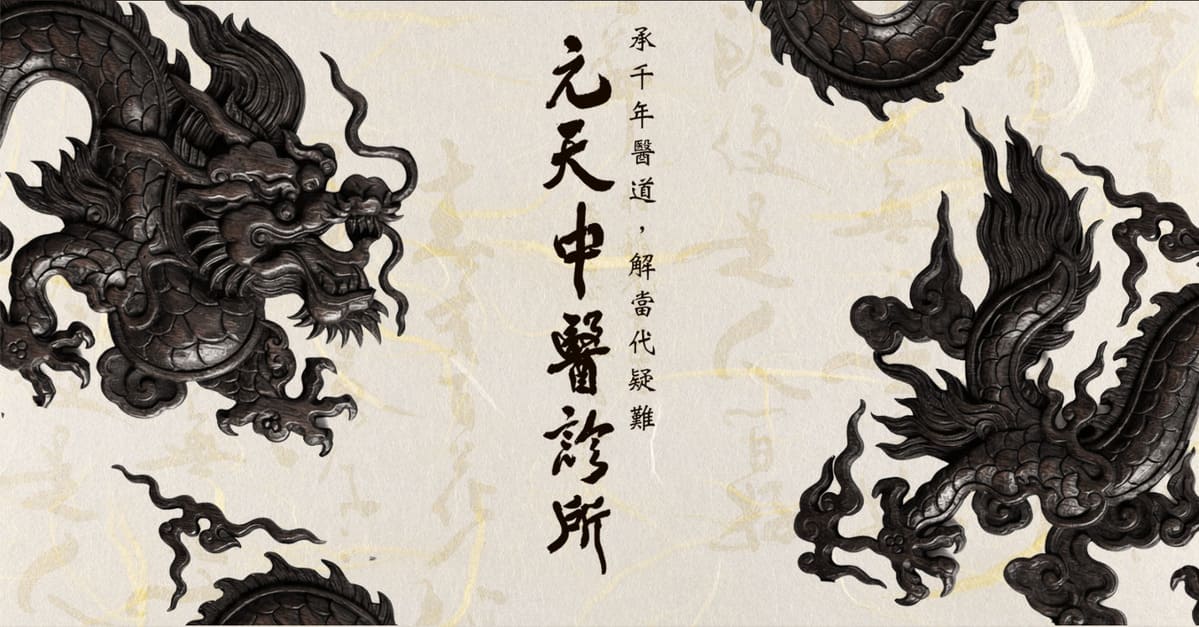 承千年醫道，解當代疑難
元天中醫診所